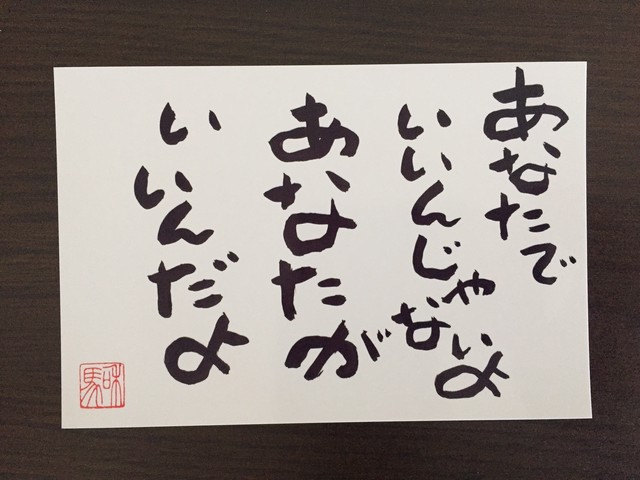 あなたで
いいんじゃないよ
あなたが
いいんだよ